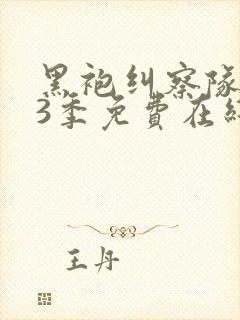 黑袍纠察队
3季免費在
王丹